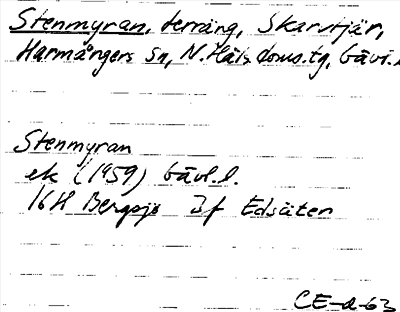 Stenmyran, terräng, Skarvtjär,
Harmångers sn, N. Häls. doms.tg, Gävl.l
Stenmyran
ek (1959) Gävl.l.
16H Bergsjö 3f Edsäten
CE-d-63